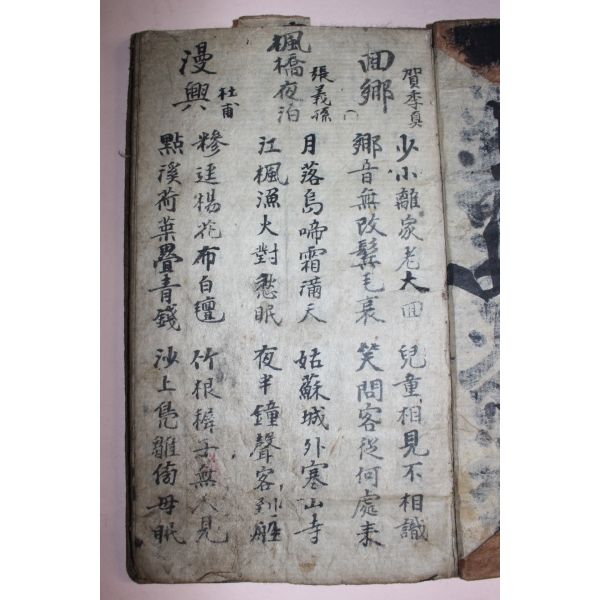 回鄉 賀季真
少小離家老大回 兒童相見不相識
鄉音無改鬂毛衰 笑問客從何處來
楓橋夜泊 張義孫
月落烏啼霜滿天 姑蘇城外寒山寺
江楓漁火對愁眠 夜半鐘聲客到船
漫興 杜甫
糝逕楊花布白氊 竹根稚子無人見
點溪荷葉疊青錢 沙上鳧雛傍母眠